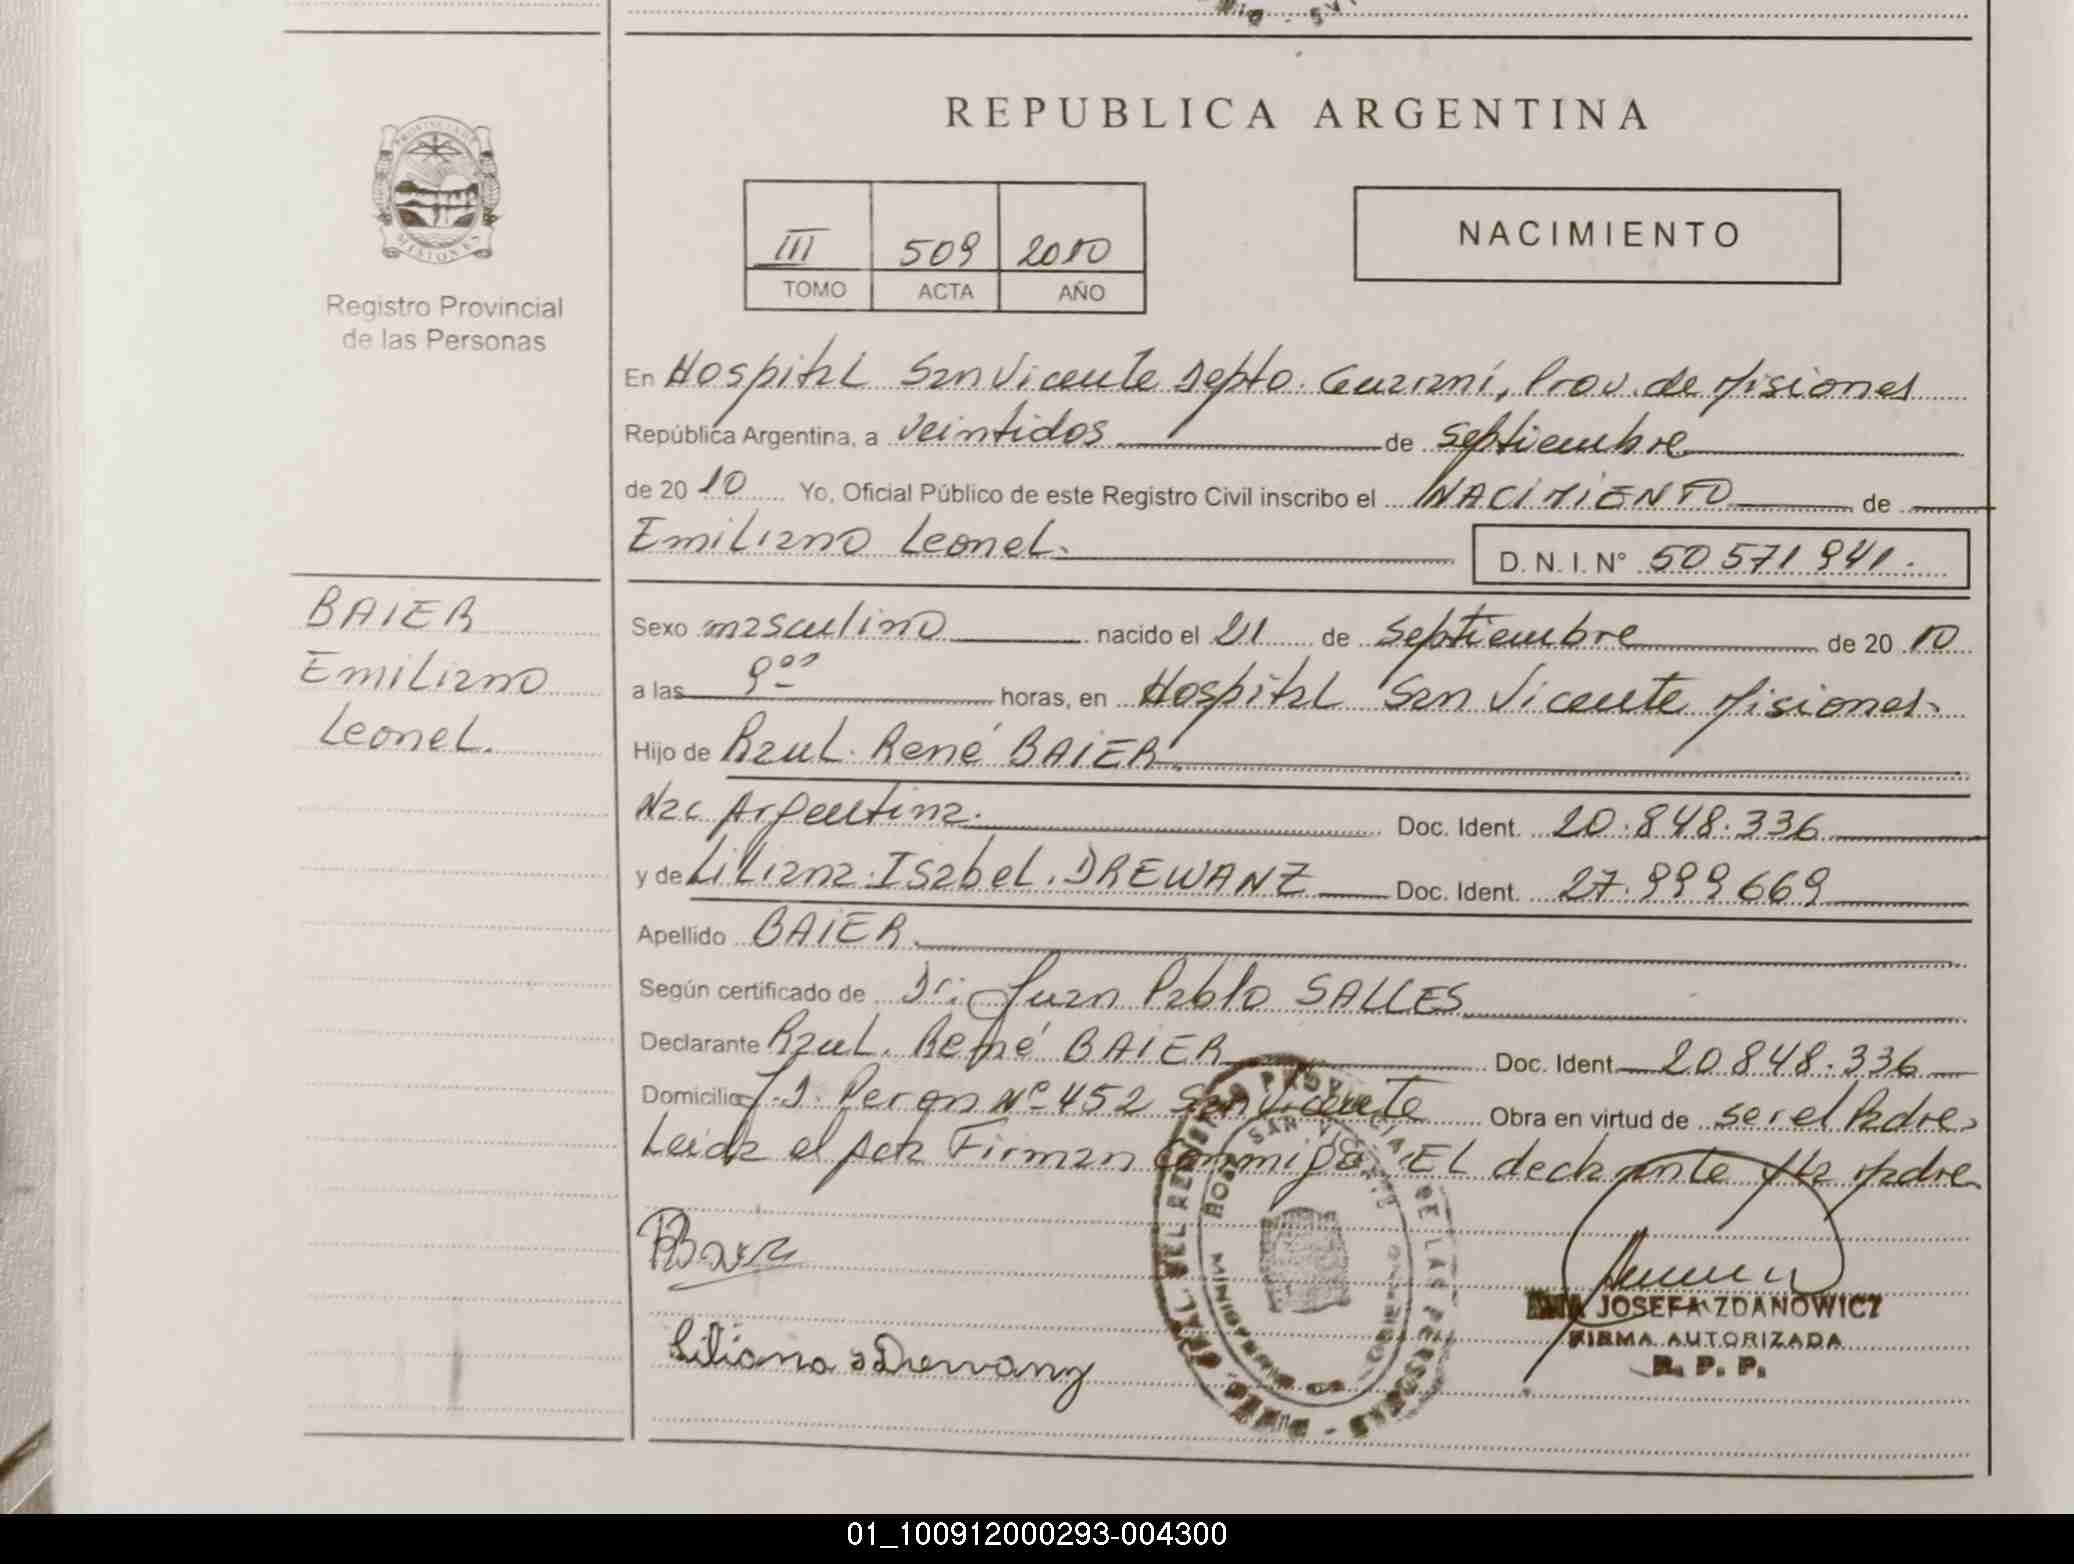 REPUBLICA ARGENTINA
PROVINCIA DE
MISIONES
Registro Provincial
de las Personas
III 509 2010
TOMO ACTA AÑO
NACIMIENTO
En Hospital San Vicente Depto. Guaraní, Prov. de Misiones
República Argentina, a veintidos de septiembre
de 2010 Yo, Oficial Público de este Registro Civil inscribo el NACIMIENTO de
Emiliano Leonel. D. N. I. N° 50 571 941.
BAIER
Emiliano
Leonel.
Sexo masculino nacido el 21 de septiembre de 2010
a las 9 00 horas, en Hospital San Vicente Misiones.
Hijo de Raul René BAIER.
Nac Argentina. Doc. Ident. 20.848.336
y de Liliana Isabel. DREWANZ Doc. Ident. 27.999669
Apellido BAIER.
Según certificado de Dr: Juan Pablo SALLES
Declarante Raul. René BAIER Doc. Ident. 20848.336
Domicilio J.D. Peron Nº 452 San Vicente Obra en virtud de ser el Padre,
Leida el Acta Firman Conmigo, EL declarante y la Madre
Liliana Drewanz
JOSEFA ZDANOWICZ
FIRMA AUTORIZADA
R. P. P.
01_100912000293-004300